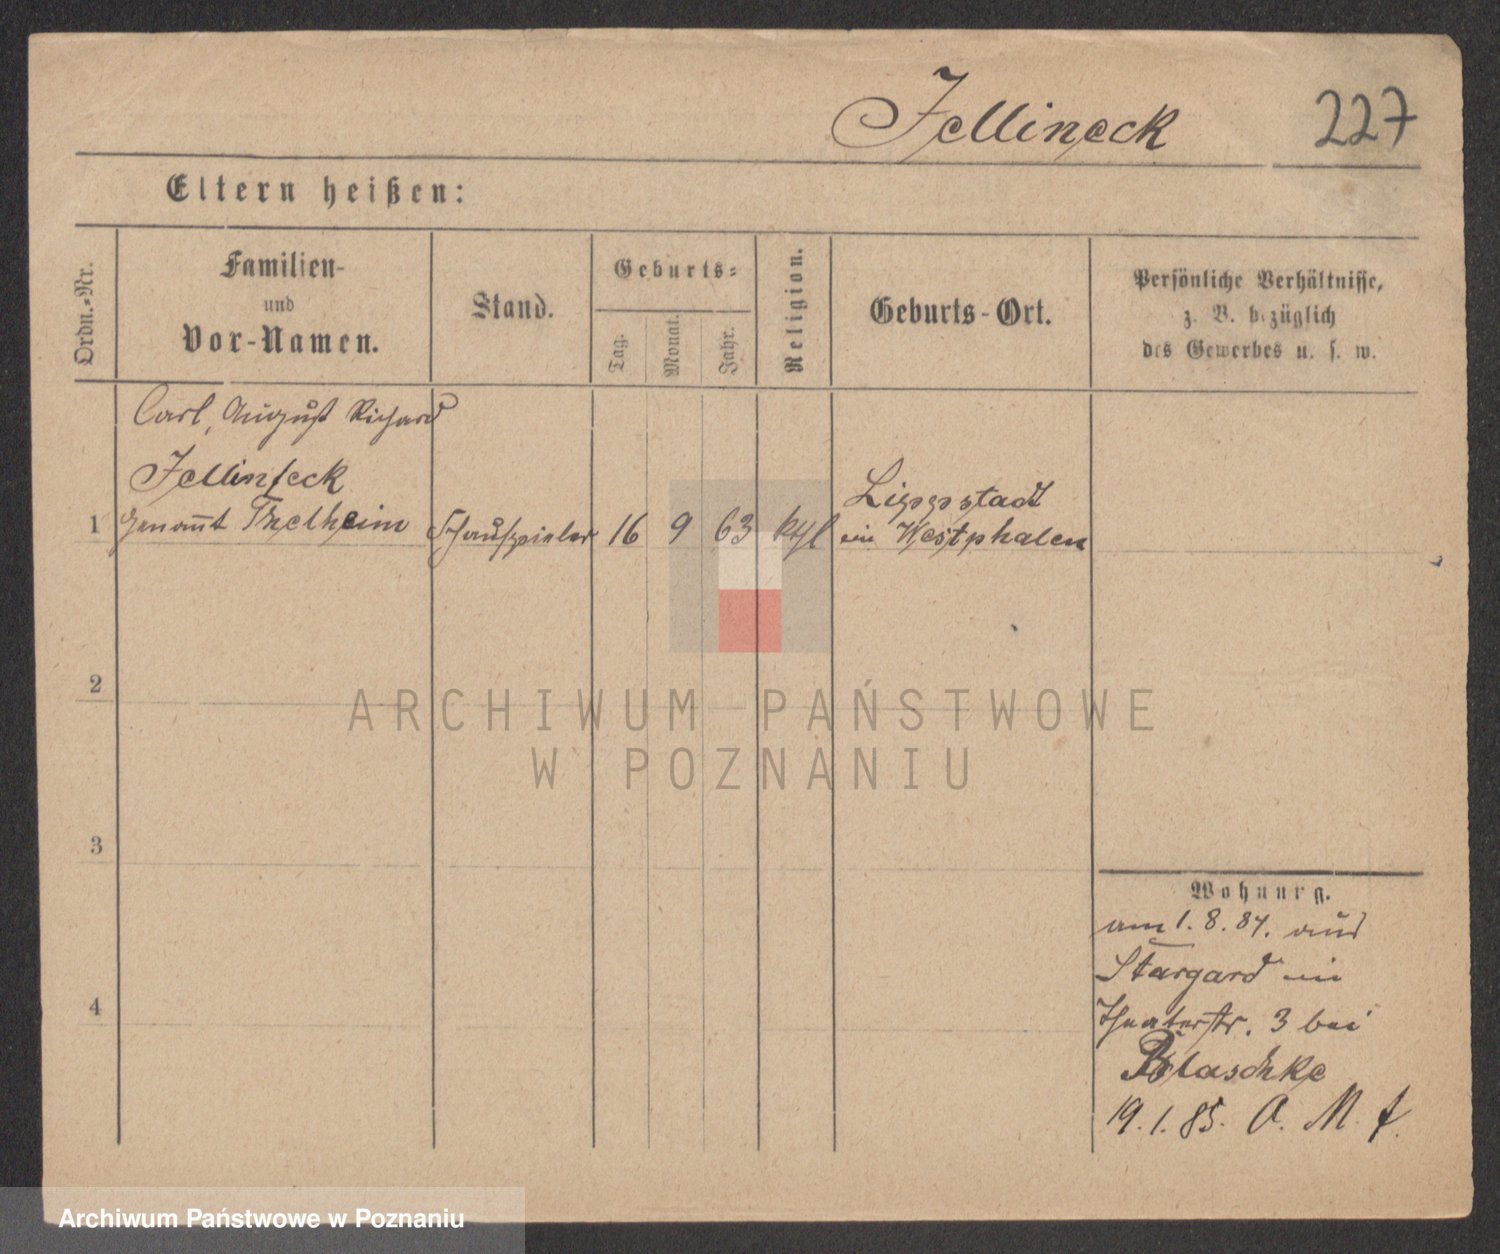 Jellineck 227
Eltern heißen:
Ordn.-Nr.
Familien-
und
Vor-Namen.
Stand.
Geburts-
Tag.
Monat.
Jahr.
Religion.
Geburts-Ort.
Persönliche Verhältnisse,
z. B. bezüglich
des Gewerbes u. s. w.
Carl, August Richard
Jellineck
1 genannt Thelheim Schauspieler 16 9 63 kth
Lippstadt
in Westphalen
2
ARCHIWUM PAŃSTWOWE
W POZNANIU
3
4
Wohnung.
am 1. 8. 84. aus
Stargard in
Theaterstr. 3 bei
Blaschke
19. 1. 85. A. M. f.
Archiwum Państwowe w Poznaniu